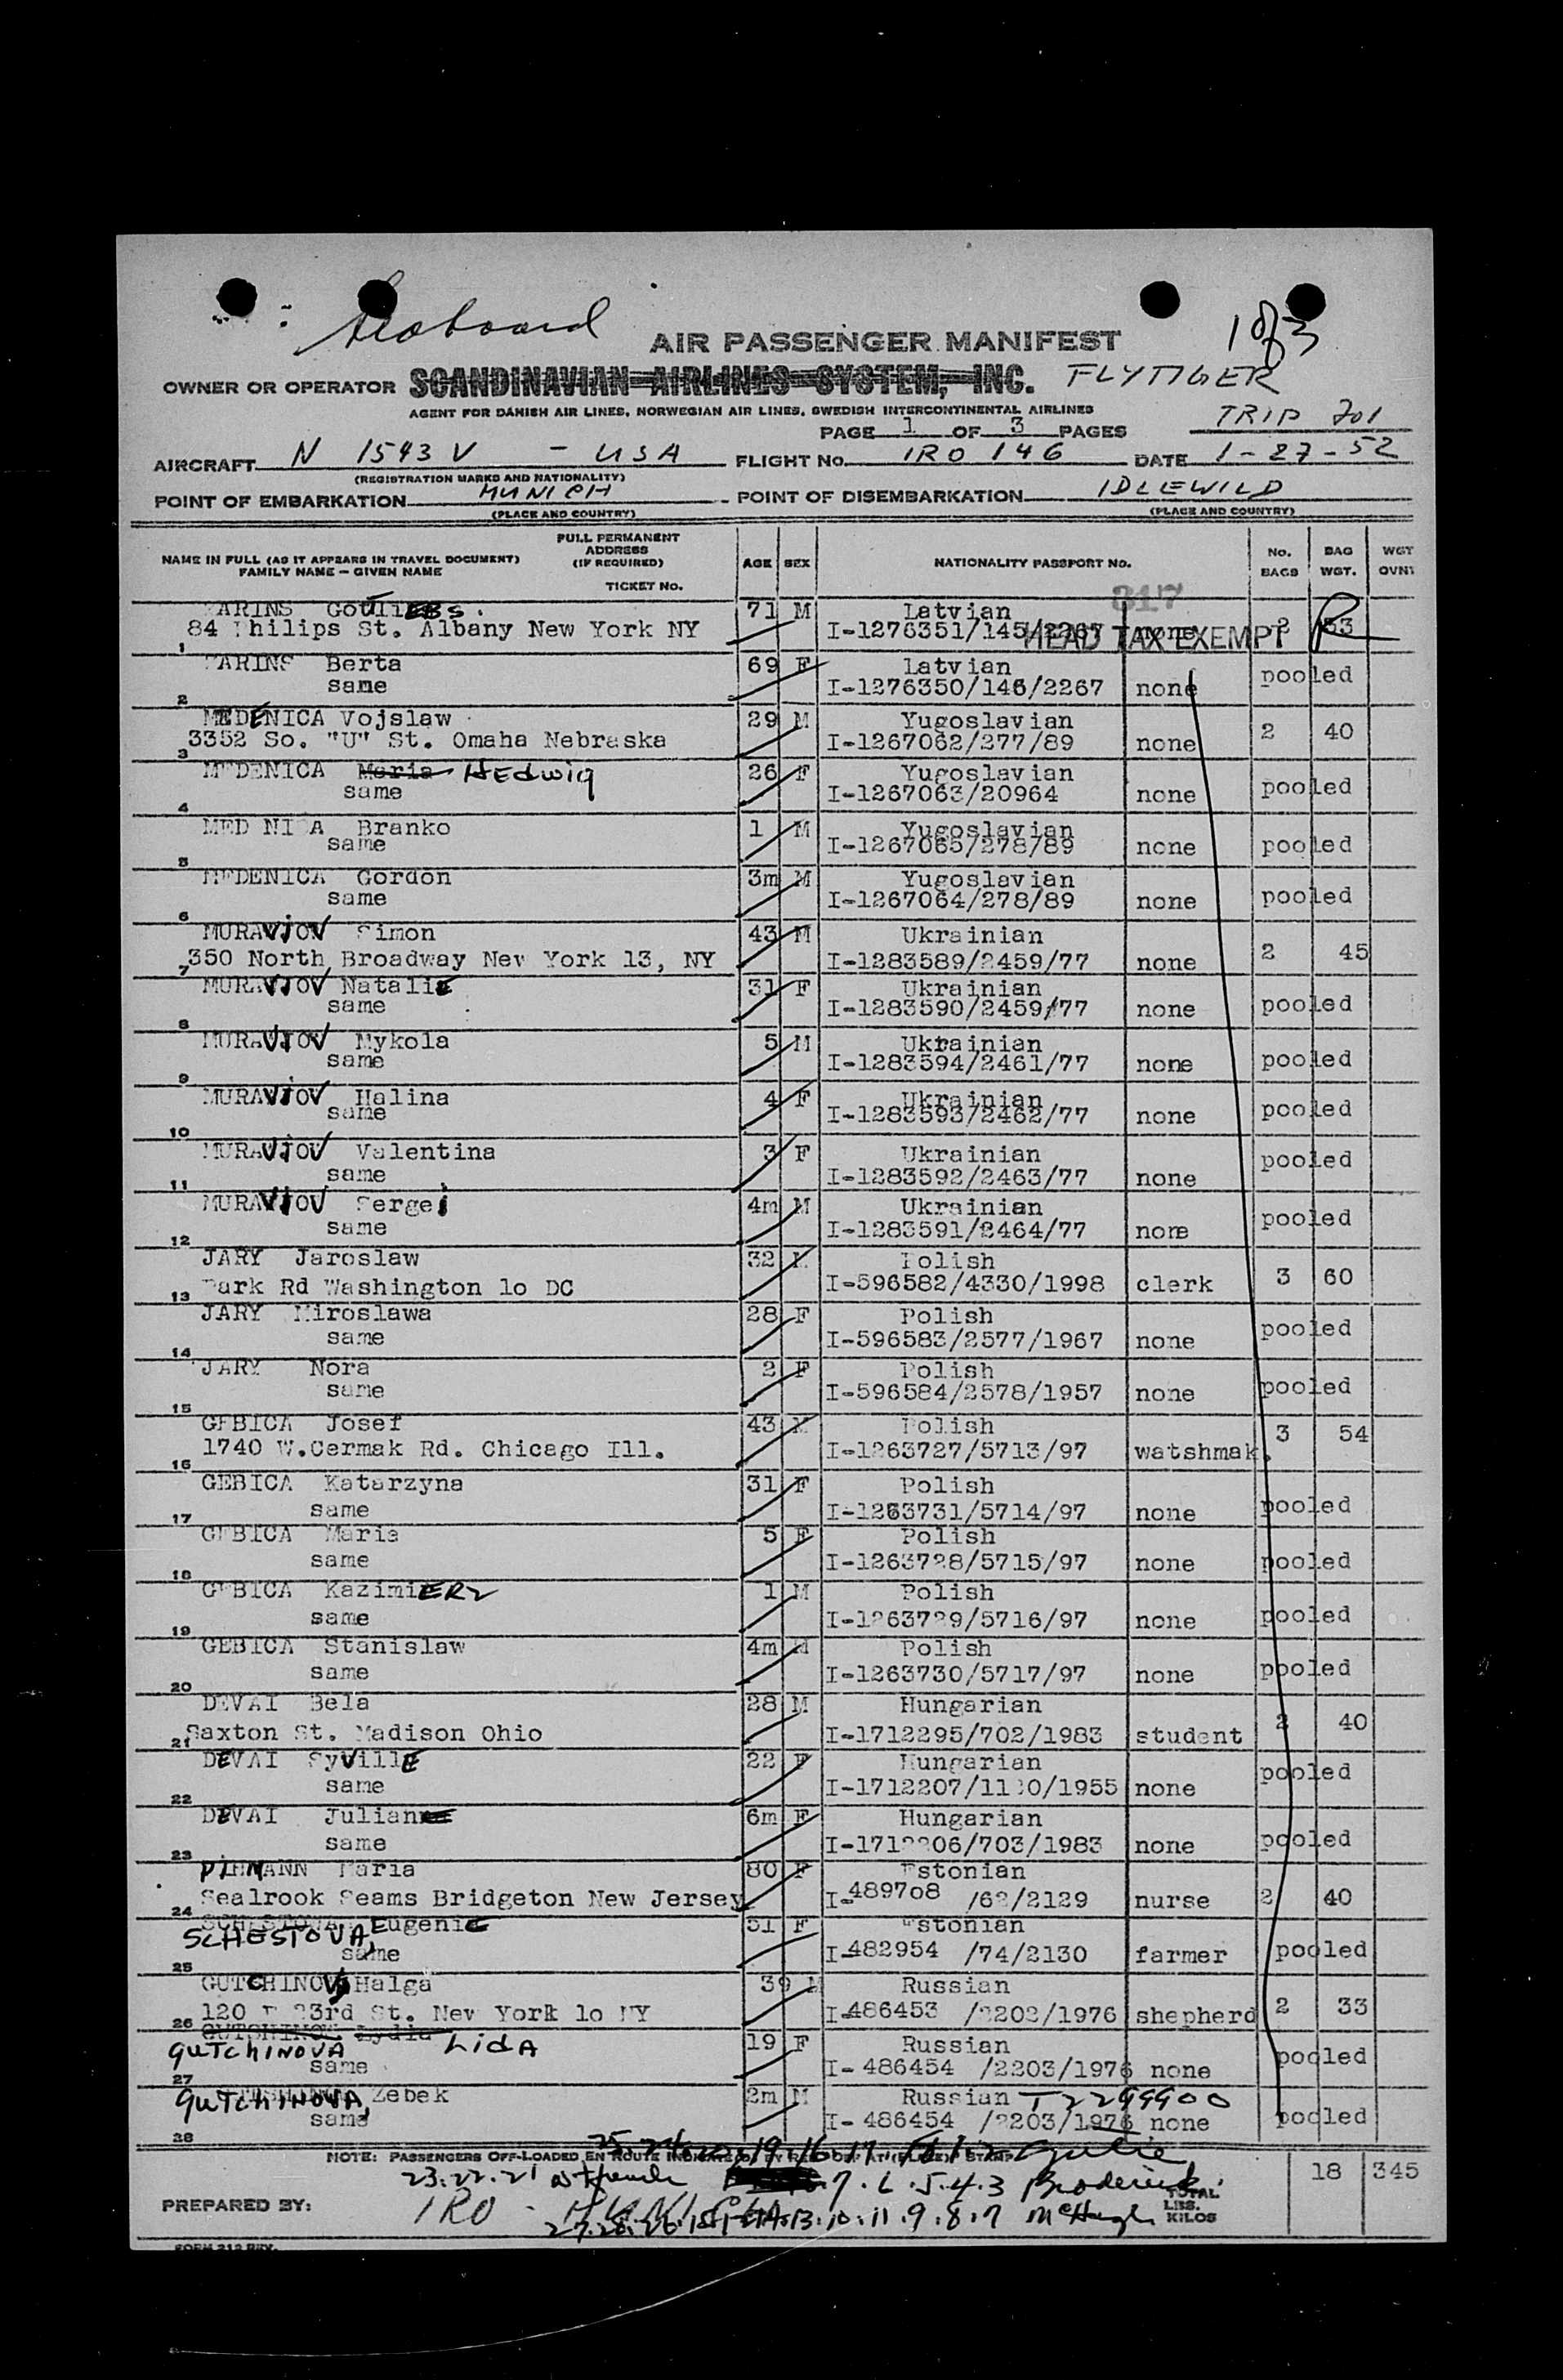 Seaboard
AIR PASSENGER MANIFEST
1 of 3
OWNER OR OPERATOR SCANDINAVIAN AIRLINES SYSTEM, INC. FLYTIGER
AGENT FOR DANISH AIR LINES, NORWEGIAN AIR LINES, SWEDISH INTERCONTINENTAL AIRLINES
TRIP 701
PAGE 1 OF 3 PAGES
AIRCRAFT N 1543 V - USA FLIGHT No. IRO 146 DATE 1-27-52
(REGISTRATION MARKS AND NATIONALITY)
POINT OF EMBARKATION MUNICH POINT OF DISEMBARKATION IDLEWILD
(PLACE AND COUNTRY) (PLACE AND COUNTRY)
NAME IN FULL (AS IT APPEARS IN TRAVEL DOCUMENT) FAMILY NAME – GIVEN NAME FULL PERMANENT ADDRESS (IF REQUIRED) TICKET No. AGE SEX NATIONALITY PASSPORT No. No. BAGS BAG WGT. WGT OVN
317
HEAD TAX EXEMPT
ARINS GottliEBS. 71 M Latvian
84 Philips St. Albany New York NY I-1276351/145/2267 none 2 53
1
ARINS Berta 69 F Latvian
same I-1276350/146/2267 none pooled
2
MEDENICA Vojslaw 29 M Yugoslavian
3352 So. "U" St. Omaha Nebraska I-1267062/277/89 none 2 40
3
MEDENICA Maria HEdwig 26 F Yugoslavian
same I-1267063/20964 none pooled
4
MED NICA Branko 1 M Yugoslavian
same I-1267065/278/89 none pooled
5
MEDENICA Gordon 3m M Yugoslavian
same I-1267064/278/89 none pooled
6
MURAVJOV Simon 43 M Ukrainian
350 North Broadway New York 13, NY I-1283589/2459/77 none 2 45
7
MURAVJOV NataliE 31 F Ukrainian
same I-1283590/2459/77 none pooled
8
MURAVJOV Mykola 5 M Ukrainian
same I-1283594/2461/77 none pooled
9
MURAVJOV Halina 4 F Ukrainian
same I-1283593/2462/77 none pooled
10
MURAVJOV Valentina 3 F Ukrainian
same I-1283592/2463/77 none pooled
11
MURAVJOV Sergej 4m M Ukrainian
same I-1283591/2464/77 none pooled
12
JARY Jaroslaw 32 M Polish
Park Rd Washington lo DC I-596582/4330/1998 clerk 3 60
13
JARY Miroslawa 28 F Polish
same I-596583/2577/1967 none pooled
14
JARY Nora 2 F Polish
same I-596584/2578/1957 none pooled
15
GEBICA Josef 43 M Polish
1740 W.Cermak Rd. Chicago Ill. I-1263727/5713/97 watshmak. 3 54
16
GEBICA Katarzyna 31 F Polish
same I-1263731/5714/97 none pooled
17
GEBICA Maria 5 F Polish
same I-1263728/5715/97 none pooled
18
GEBICA KazimiERz 1 M Polish
same I-1263729/5716/97 none pooled
19
GEBICA Stanislaw 4m M Polish
same I-1263730/5717/97 none pooled
20
DEVAI Bela 28 M Hungarian
Saxton St. Madison Ohio I-1712295/702/1983 student 2 40
21
DEVAI SyVillE 22 F Hungarian
same I-1712207/11 0/1955 none pooled
22
DEVAI Julian 6m F Hungarian
same I-1712206/703/1983 none pooled
23
PIHMANN Maria 80 F Estonian
Sealrook Seams Bridgeton New Jersey I-489708 /62/2129 nurse 2 40
24
SCHESTOVA, EugeniE 51 F Estonian
same I-482954 /74/2130 farmer pooled
25
GUTCHINOV Halga 39 M Russian
120 23rd St. New York lo NY I-486453 /2202/1976 shepherd 2 33
26
GUTCHINOW Lydia LidA
GUTCHINOVA 19 F Russian
same I-486454 /2203/1976 none pooled
27
GUTCHINOVA, Zebek 2m M Russian T2299900
same I-486454 /2203/1976 none pooled
28
NOTE: PASSENGERS OFF-LOADED EN ROUTE
23.22.21 7.6.5.4.3 Broderick
18 345
PREPARED BY: IRO - MUNICH
13.10.11.9.8.7 McHugh
TOTAL LBS. KILOS
FORM 212 REV.